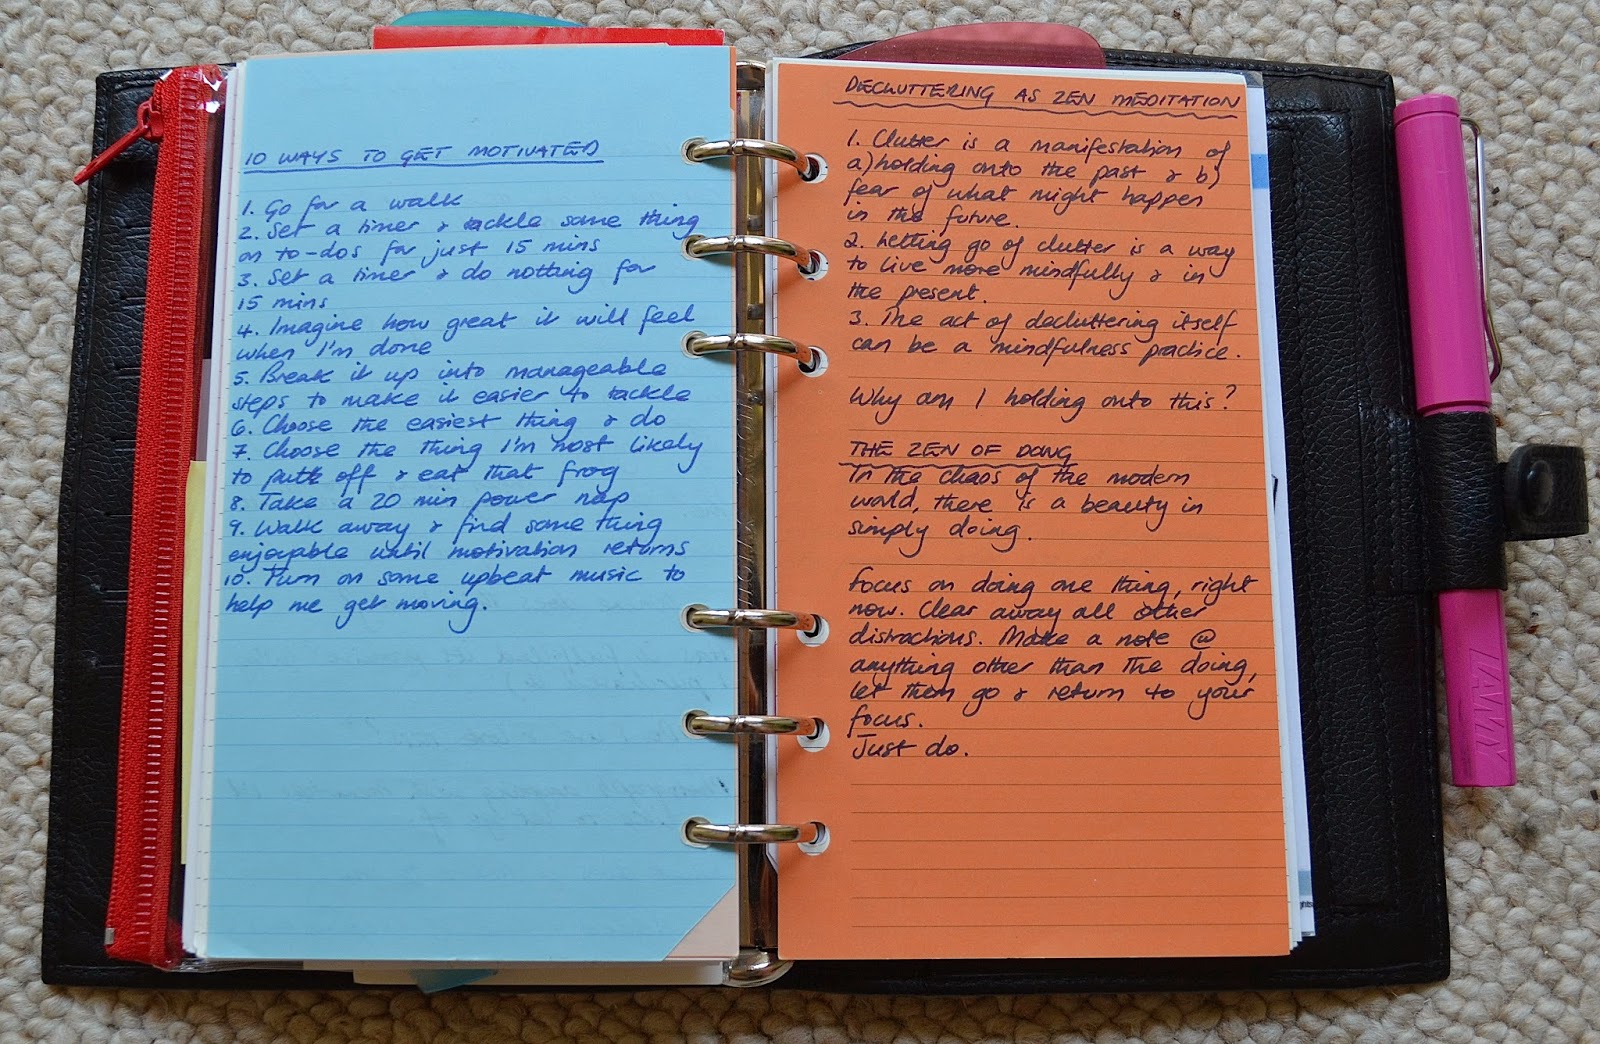 10 WAYS TO GET MOTIVATED
1. Go for a walk
2. Set a timer & tackle some thing
on to-dos for just 15 mins
3. Set a timer & do nothing for
15 mins
4. Imagine how great it will feel
when I'm done
5. Break it up into manageable
steps to make it easier to tackle
6. Choose the easiest thing & do
7. Choose the thing I'm most likely
to put off & eat that frog
8. Take a 20 min power nap
9. Walk away & find some thing
enjoyable until motivation returns
10. Turn on some upbeat music to
help me get moving.
DECLUTTERING AS ZEN MEDITATION
1. Clutter is a manifestation of
a) holding onto the past & b)
fear of what might happen
in the future.
2. Letting go of clutter is a way
to live more mindfully & in
the present.
3. The act of decluttering itself
can be a mindfulness practice.
Why am I holding onto this?
THE ZEN OF DOING
In the chaos of the modern
world, there is a beauty in
simply doing.
Focus on doing one thing, right
now. Clear away all other
distractions. Make a note @
anything other than The doing,
let them go & return to your
focus.
Just do.
LAMY